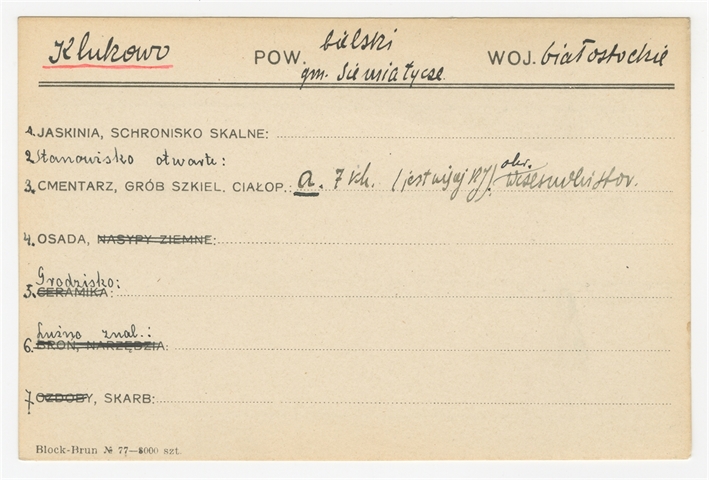 Klukowo POW. bielski WOJ. białostockie
gm. Siemiatycze
1. JASKINIA, SCHRONISKO SKALNE:
2. Stanowisko otwarte:
3. CMENTARZ, GRÓB SZKIEL. CIAŁOP.: a. 7 kh. (jest więcej KJ). okr. wczesnohistor.
4. OSADA, NASYPY ZIEMNE:
Grodzisko:
5. CERAMIKA:
Luźno znal.:
6. BROŃ, NARZĘDZIA:
7. OZDOBY, SKARB:
Block-Brun № 77—8000 szt.